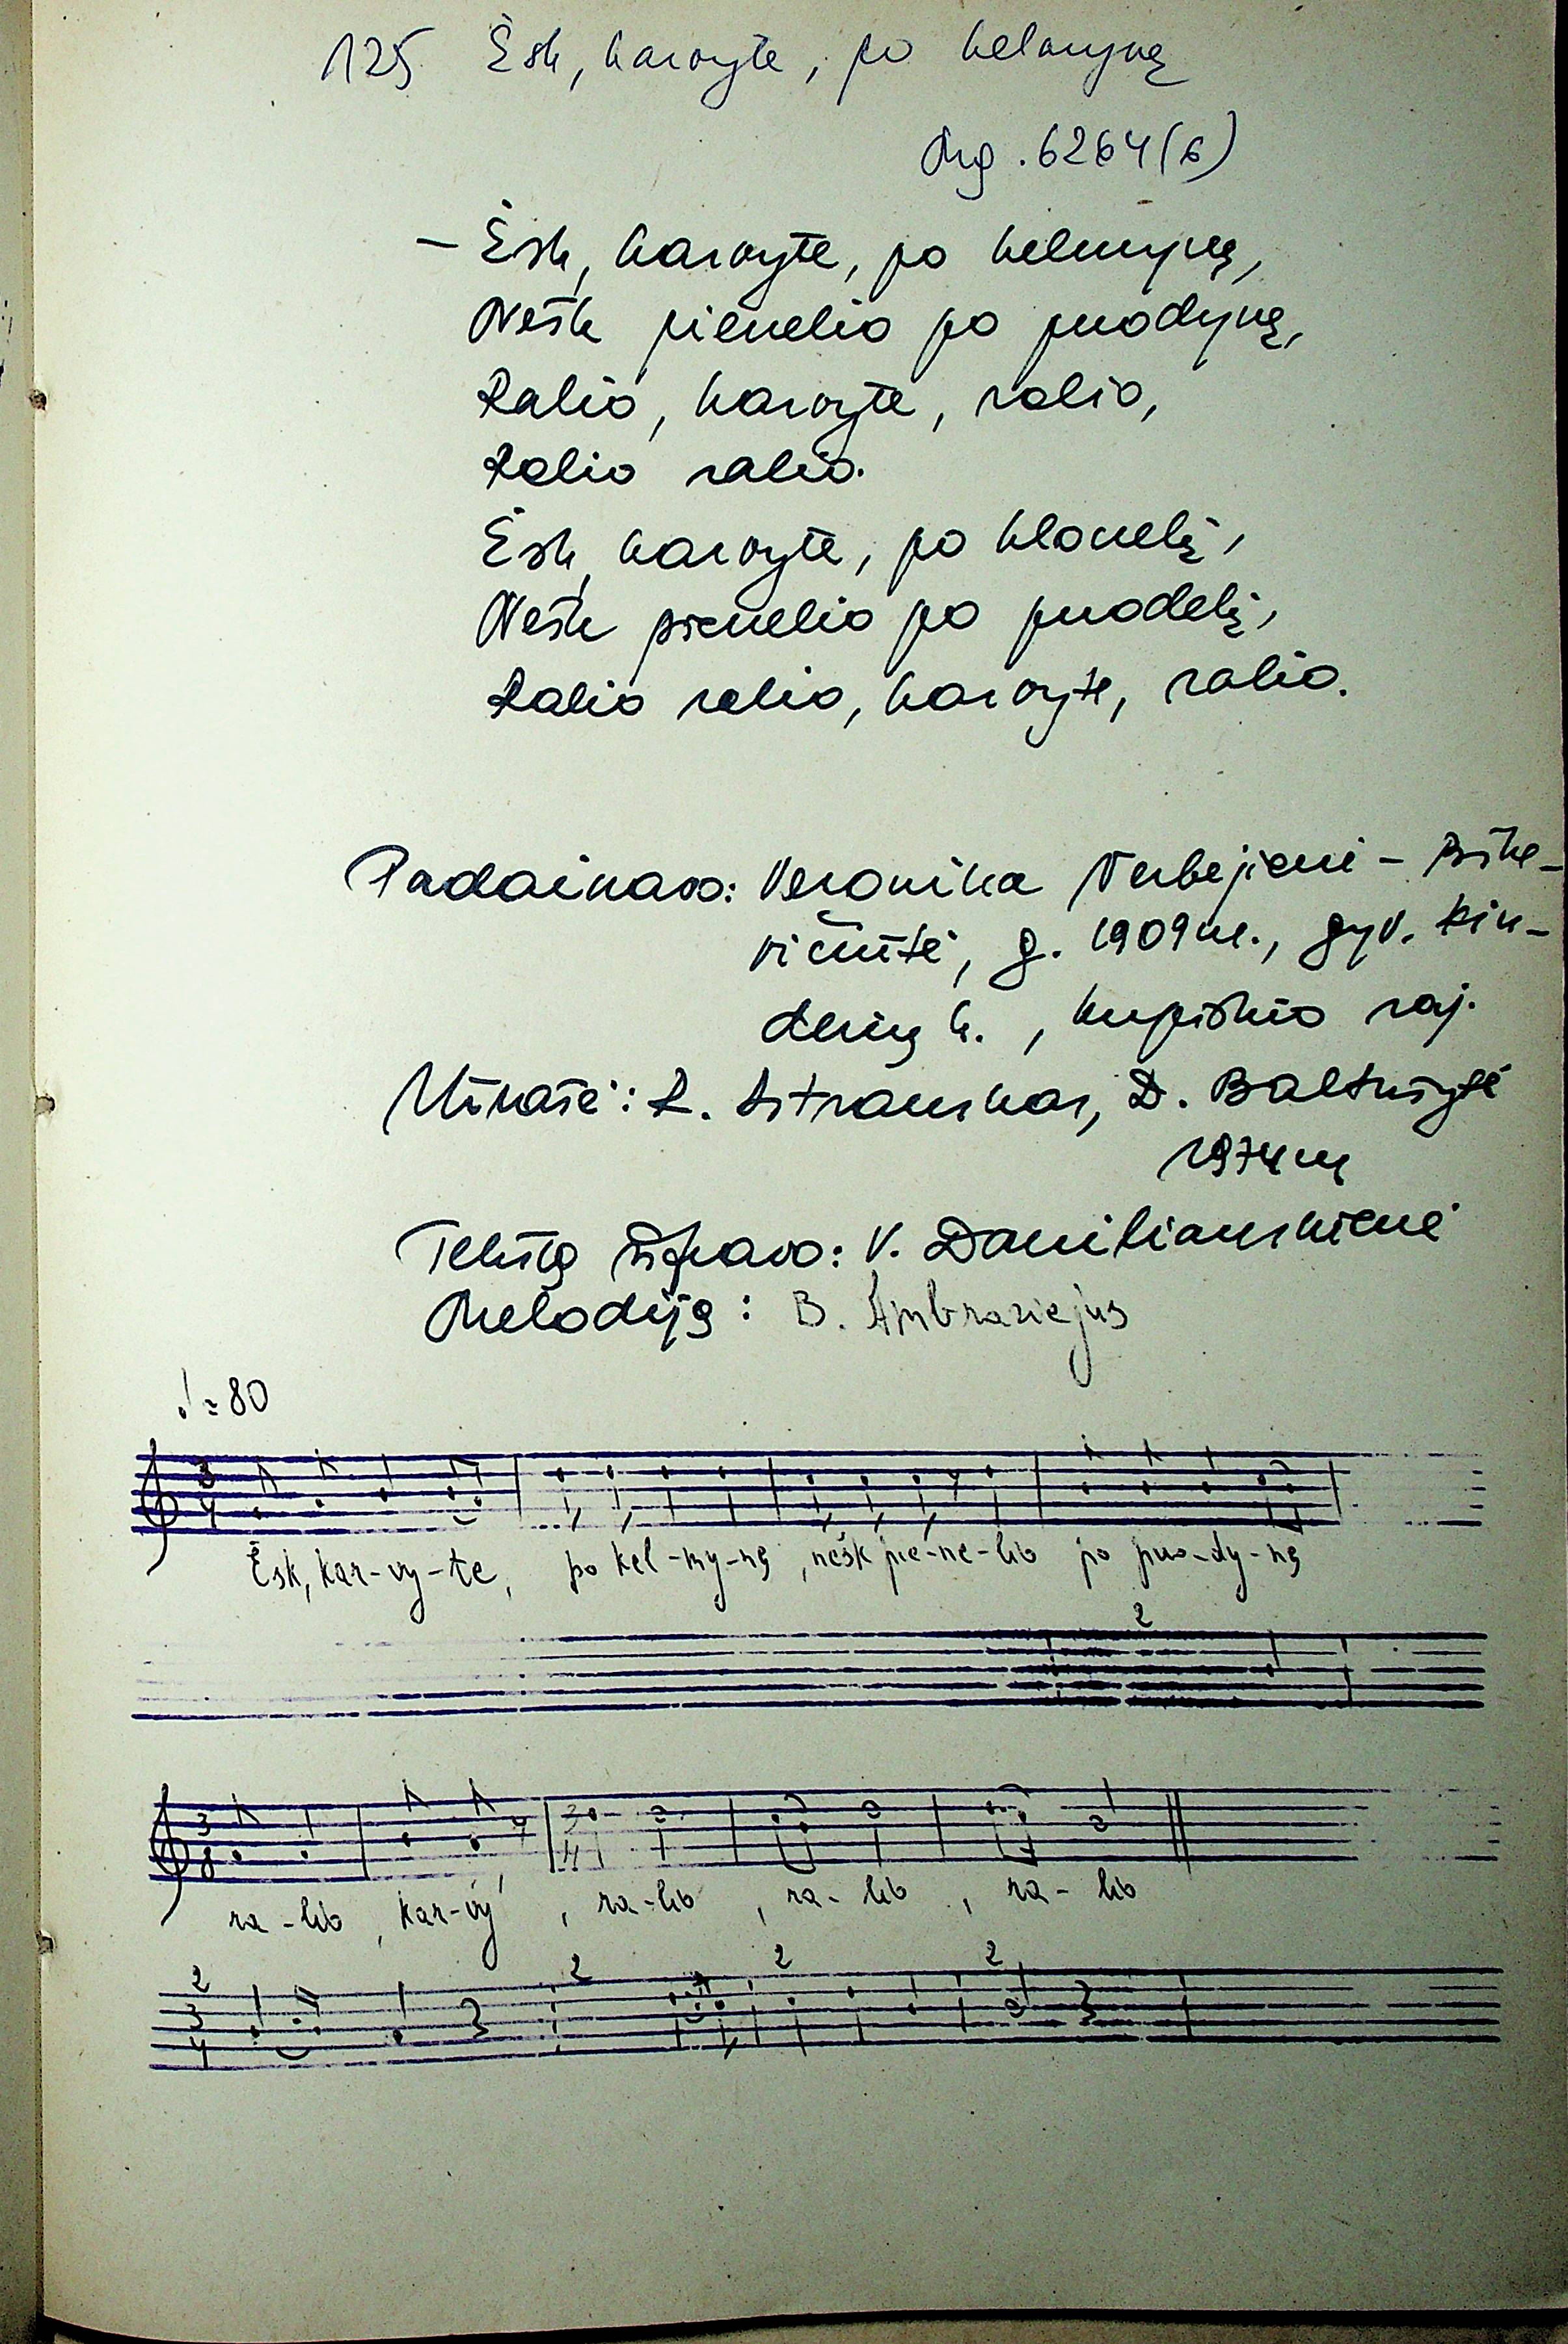 125 Ėsk, karvyte, po kelmynę
Mg. 6264(6)
– Ėsk, karvyte, po kelmynę,
Nešk pienelio po puodynę,
Ralio, karvyte, ralio,
Ralio ralio.
Ėsk, karvyte, po klonelį,
Nešk pienelio po puodelį,
Ralio ralio, karvyte, ralio.
Padainavo: Veronika
vičiūtė, g. 1909 m., gyv. Kin-
derių k., Kupiškio raj.
Užrašė: L. Astrauskas, D. Baltušytė
1974 m
Tekstą šifravo: V. Daniliauskienė
Melodiją: B. Ambraziejus
♩ = 80
3
4
Ėsk, kar-vy-te, po kel-my-nę, nešk pie-ne-lio po puo-dy-nę
2
3
8
3
4
ra-lio, kar-vy, ra-lio, ra-lio, ra-lio
2
2
2
2
3
4